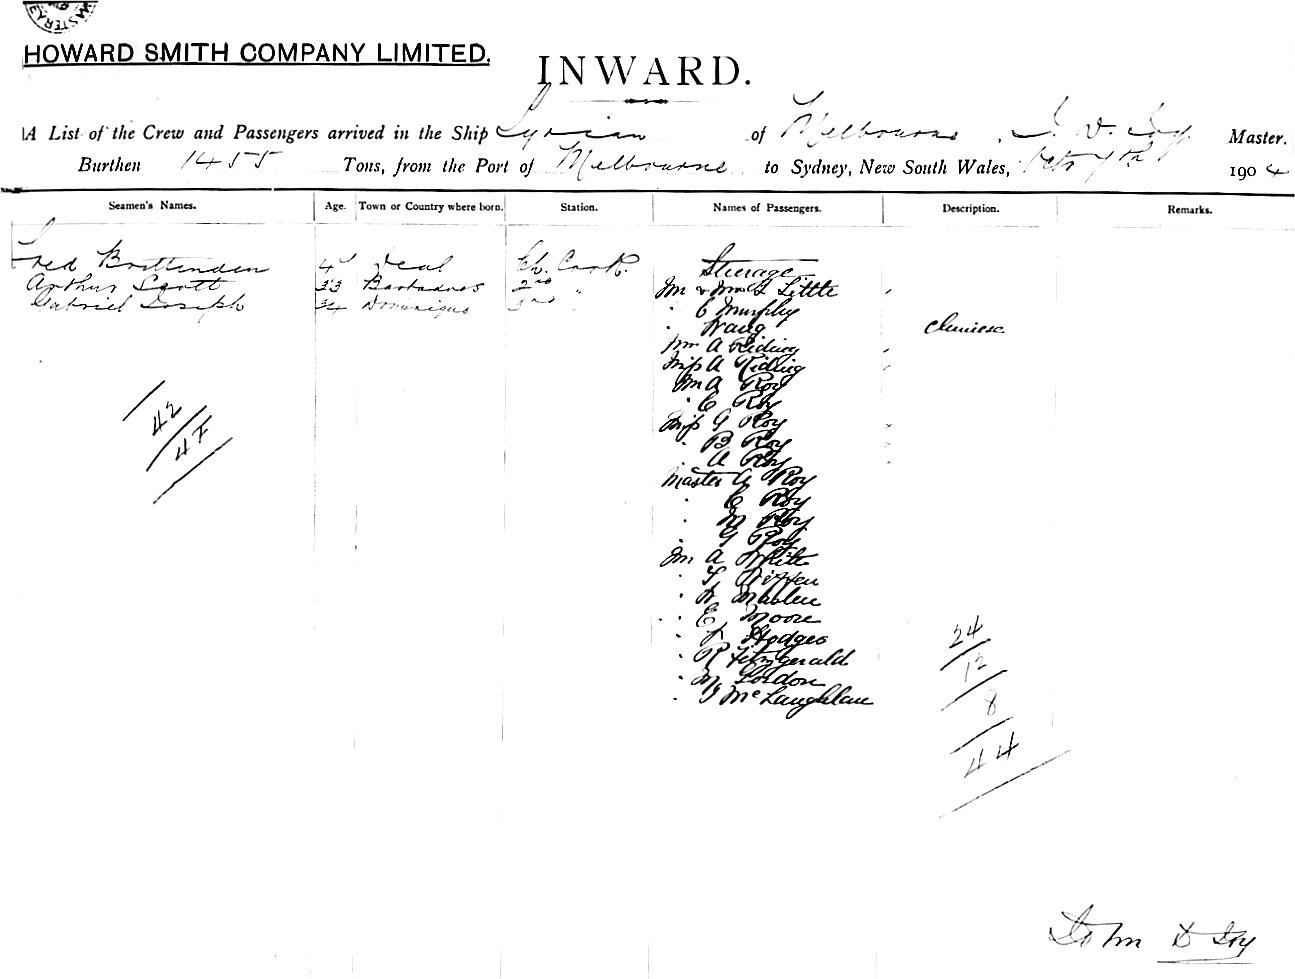 HOWARD SMITH COMPANY LIMITED.
INWARD.
A List of the Crew and Passengers arrived in the Ship Syrian of Melbourne, J. D. Joy. Master.
Burthen 1455 Tons, from the Port of Melbourne to Sydney, New South Wales, 7th 1904
Seamen's Names. Age. Town or Country where born. Station. Names of Passengers. Description. Remarks.
Fred Brittenden Deal Ch. Cook. Steerage
Arthur Scott 33 Barbados 2nd "
Gabriel Joseph 34 Dominique 3rd "
Mr & Mrs Little
" C Murphy
" Wang Chinese
Mrs A Riding
Miss A Riding
Mr A Roy
" C Roy
Miss G Roy
" B Roy
" A Roy
Master A Roy
" C Roy
" M Roy
" G Roy
Mr A White
"
"
" E Moore
" Hodges
" R Fitzgerald
" M Gordon
" J McLaughlan
42
47
24
12
8
44
John D Joy